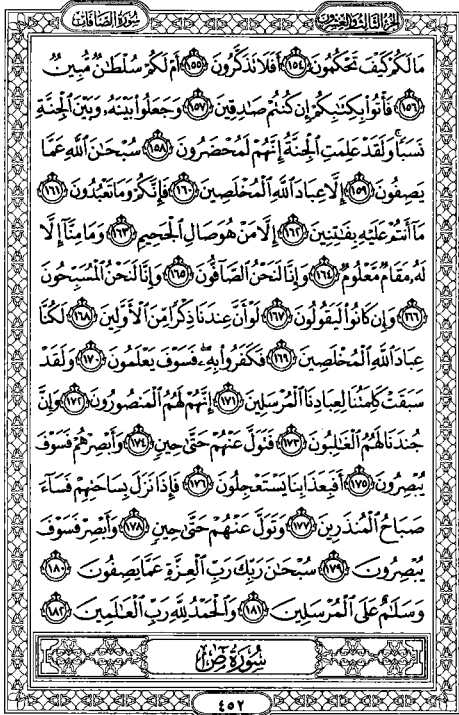 الجزء الثالث والعشرون سورة الصافات
مَا لَكُمْ كَيْفَ تَحْكُمُونَ ١٥٤ أَفَلَا تَذَكَّرُونَ ١٥٥ أَمْ لَكُمْ سُلْطَانٌ مُّبِينٌ
١٥٦ فَأْتُوا بِكِتَابِكُمْ إِن كُنتُمْ صَادِقِينَ ١٥٧ وَجَعَلُوا بَيْنَهُ وَبَيْنَ الْجِنَّةِ
نَسَبًا وَلَقَدْ عَلِمَتِ الْجِنَّةُ إِنَّهُمْ لَمُحْضَرُونَ ١٥٨ سُبْحَانَ اللَّهِ عَمَّا
يَصِفُونَ ١٥٩ إِلَّا عِبَادَ اللَّهِ الْمُخْلَصِينَ ١٦٠ فَإِنَّكُمْ وَمَا تَعْبُدُونَ ١٦١
مَا أَنتُمْ عَلَيْهِ بِفَاتِنِينَ ١٦٢ إِلَّا مَنْ هُوَ صَالِ الْجَحِيمِ ١٦٣ وَمَا مِنَّا إِلَّا
لَهُ مَقَامٌ مَّعْلُومٌ ١٦٤ وَإِنَّا لَنَحْنُ الصَّافُّونَ ١٦٥ وَإِنَّا لَنَحْنُ الْمُسَبِّحُونَ
١٦٦ وَإِن كَانُوا لَيَقُولُونَ ١٦٧ لَوْ أَنَّ عِندَنَا ذِكْرًا مِّنَ الْأَوَّلِينَ ١٦٨ لَكُنَّا
عِبَادَ اللَّهِ الْمُخْلَصِينَ ١٦٩ فَكَفَرُوا بِهِ فَسَوْفَ يَعْلَمُونَ ١٧٠ وَلَقَدْ
سَبَقَتْ كَلِمَتُنَا لِعِبَادِنَا الْمُرْسَلِينَ ١٧١ إِنَّهُمْ لَهُمُ الْمَنصُورُونَ ١٧٢ وَإِنَّ
جُندَنَا لَهُمُ الْغَالِبُونَ ١٧٣ فَتَوَلَّ عَنْهُمْ حَتَّىٰ حِينٍ ١٧٤ وَأَبْصِرْهُمْ فَسَوْفَ
يُبْصِرُونَ ١٧٥ أَفَبِعَذَابِنَا يَسْتَعْجِلُونَ ١٧٦ فَإِذَا نَزَلَ بِسَاحَتِهِمْ فَسَاءَ
صَبَاحُ الْمُنذَرِينَ ١٧٧ وَتَوَلَّ عَنْهُمْ حَتَّىٰ حِينٍ ١٧٨ وَأَبْصِرْ فَسَوْفَ
يُبْصِرُونَ ١٧٩ سُبْحَانَ رَبِّكَ رَبِّ الْعِزَّةِ عَمَّا يَصِفُونَ ١٨٠
وَسَلَامٌ عَلَى الْمُرْسَلِينَ ١٨١ وَالْحَمْدُ لِلَّهِ رَبِّ الْعَالَمِينَ ١٨٢
سُورَةُ صٓ
٤٥٢